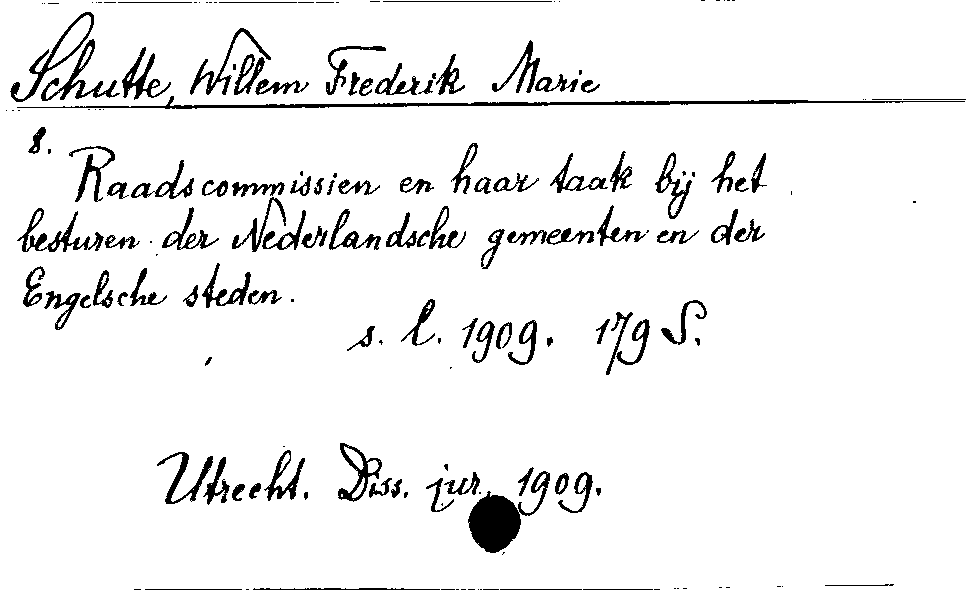 Schutte, Willem Frederik Marie
8.
Raadscommissien en haar taak bij het
besturen der Nederlandsche gemeenten en der
Engelsche steden.
s. l. 1909. 179 S.
Utrecht. Diss. jur. 1909.